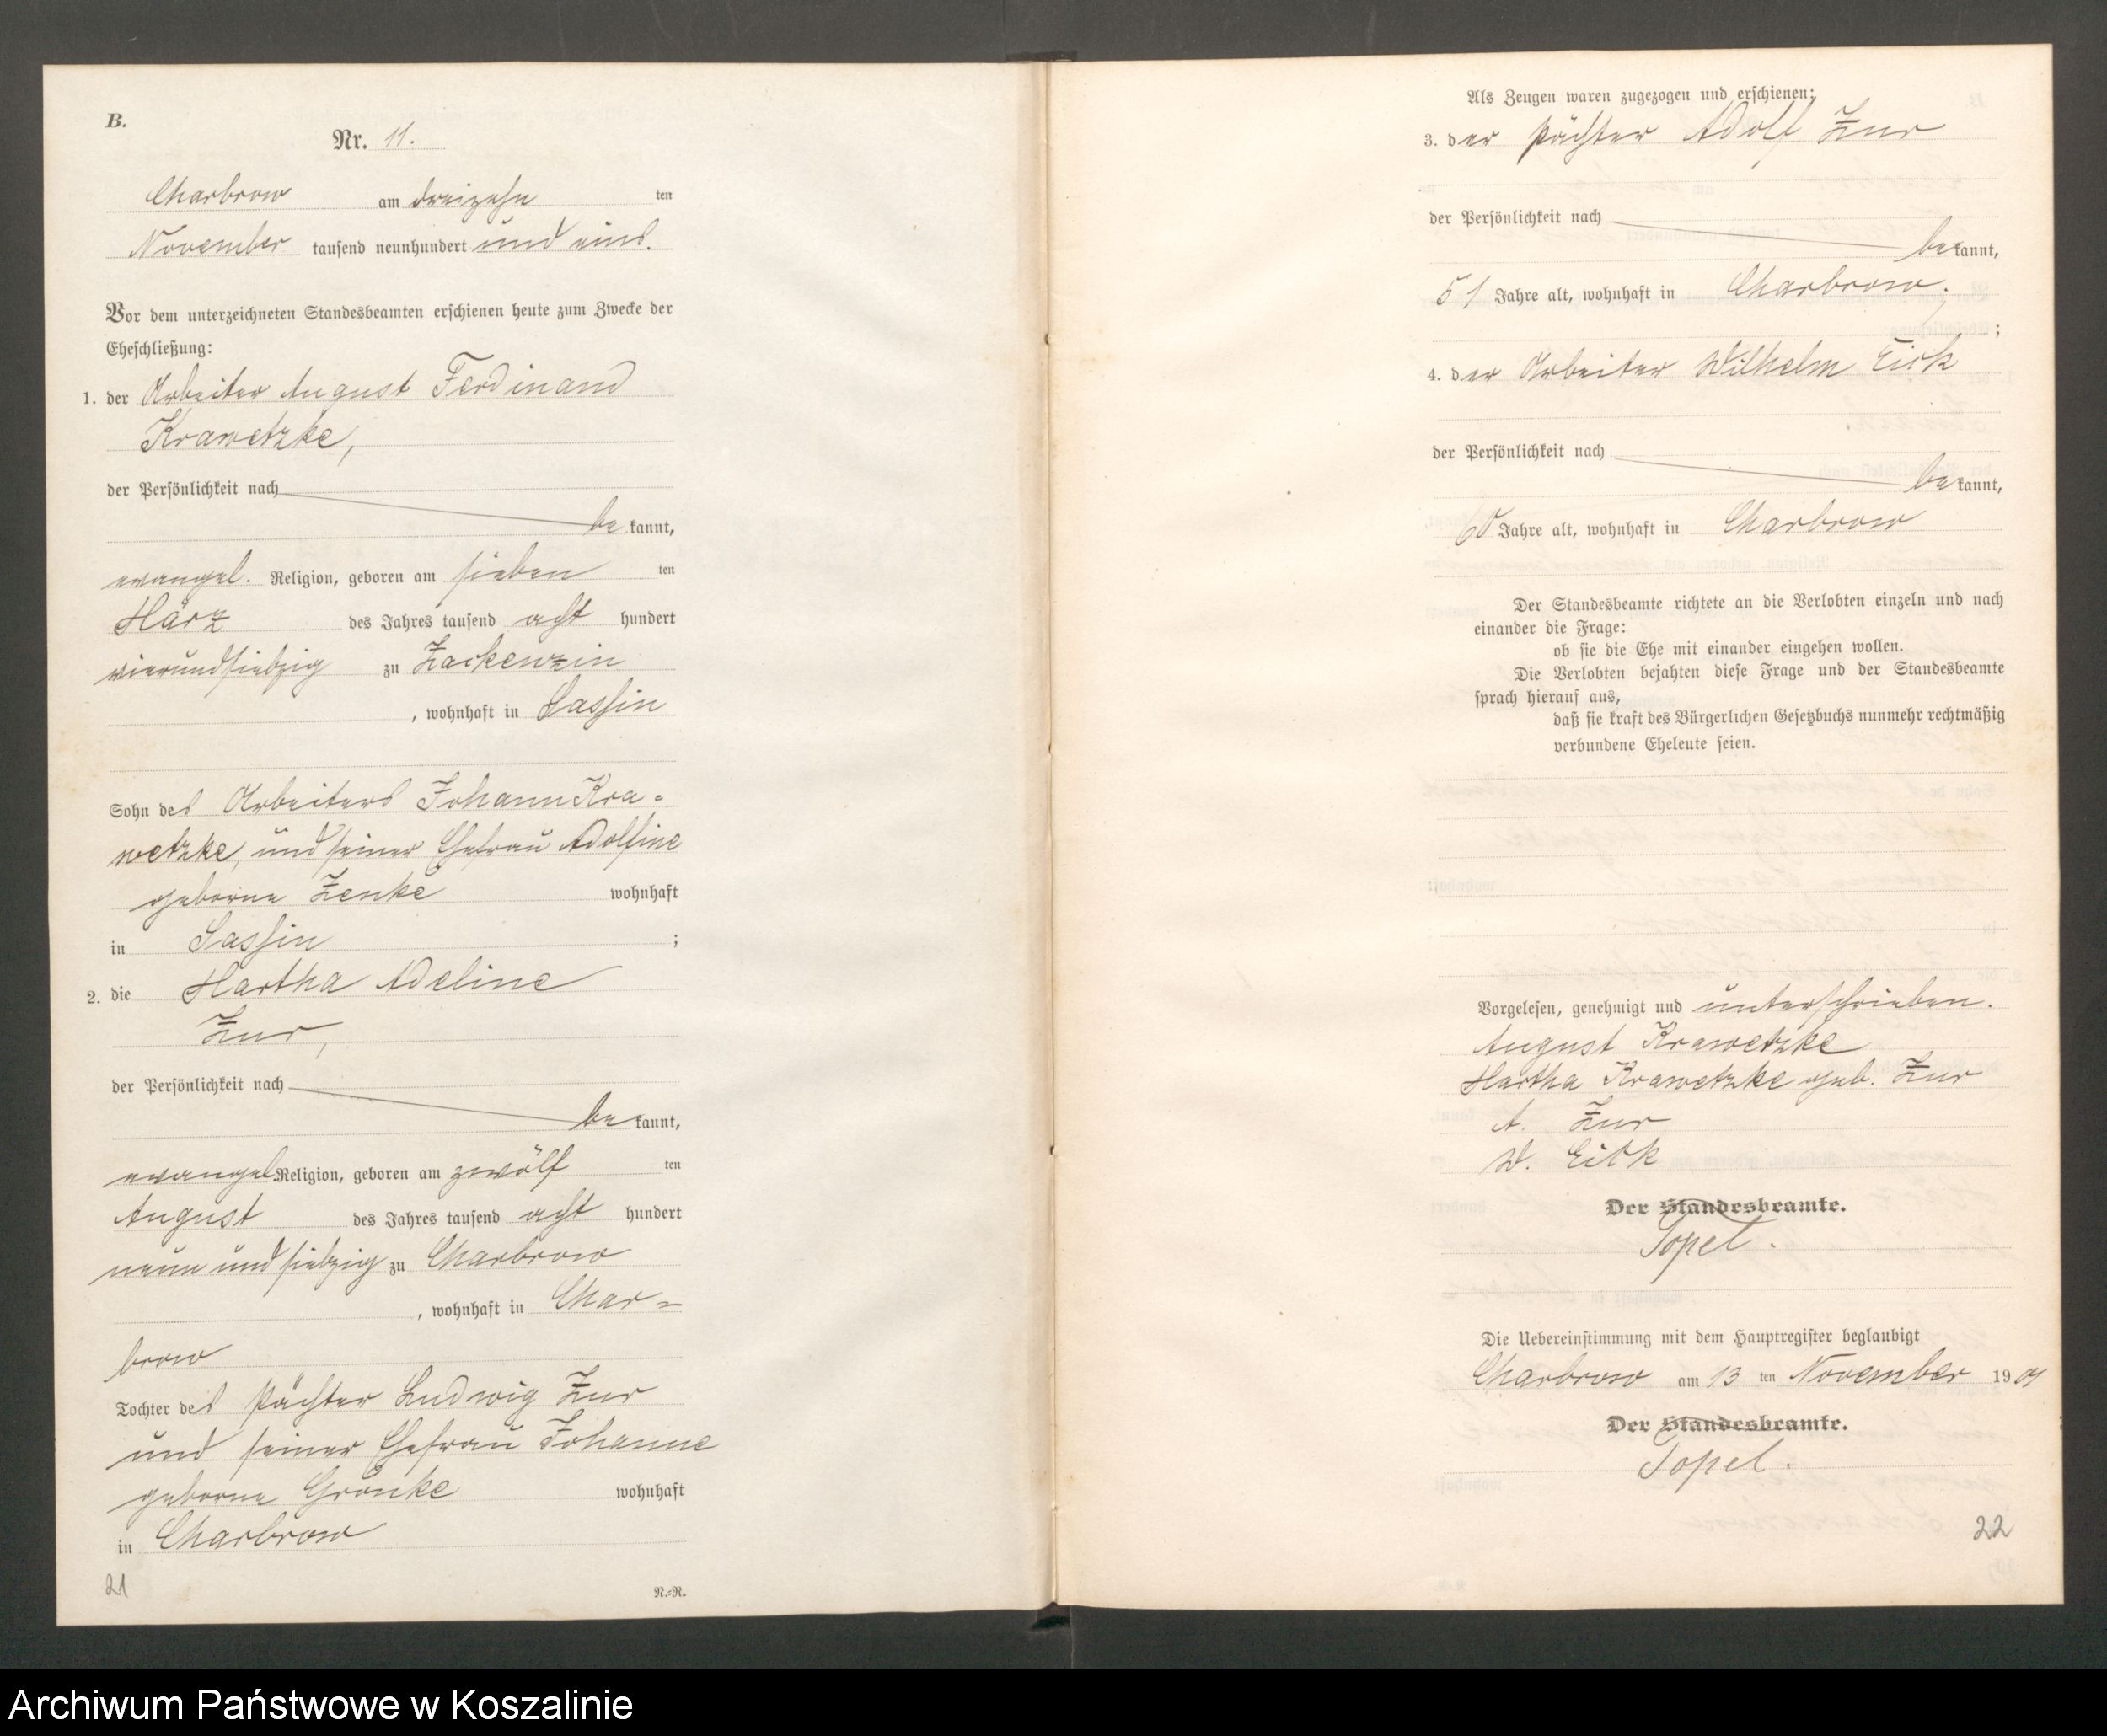 B.
Nr. 11.
Charbrow am dreizehnten
November tausend neunhundert und eins.
Vor dem unterzeichneten Standesbeamten erschienen heute zum Zwecke der
Eheschließung:
1. der Arbeiter August Ferdinand
Krawetzke,
der Persönlichkeit nach
bekannt,
evangel. Religion, geboren am siebenten
März des Jahres tausend acht hundert
vierundsiebzig zu Zackenzin
, wohnhaft in Sassin
Sohn des Arbeiters Johann Kra=
wetzke, und seiner Ehefrau Adolfine
geborne Zenke wohnhaft
in Sassin ;
2. die Martha Adeline
Zur,
der Persönlichkeit nach
bekannt,
evangel. Religion, geboren am zwölften
August des Jahres tausend acht hundert
neun und siebzig zu Charbrow
, wohnhaft in Char=
brow
Tochter des Pächter Ludwig Zur
und seiner Ehefrau Johanne
geborne Gronke wohnhaft
in Charbrow
21
N.=N.
Als Zeugen waren zugezogen und erschienen:
3. der Pächter Adolf Zur
der Persönlichkeit nach
bekannt,
51 Jahre alt, wohnhaft in Charbrow.
;
4. der Arbeiter Wilhelm Eick
der Persönlichkeit nach
bekannt,
60 Jahre alt, wohnhaft in Charbrow
Der Standesbeamte richtete an die Verlobten einzeln und nach
einander die Frage:
ob sie die Ehe mit einander eingehen wollen.
Die Verlobten bejahten diese Frage und der Standesbeamte
sprach hierauf aus,
daß sie kraft des Bürgerlichen Gesetzbuchs nunmehr rechtmäßig
verbundene Eheleute seien.
Vorgelesen, genehmigt und unterschrieben.
August Krawetzke
Martha Krawetzke geb. Zur
A. Zur
W. Eick
Der Standesbeamte.
Topel.
Die Uebereinstimmung mit dem Hauptregister beglaubigt
Charbrow am 13 ten November 1901
Der Standesbeamte.
Topel.
22
Archiwum Państwowe w Koszalinie